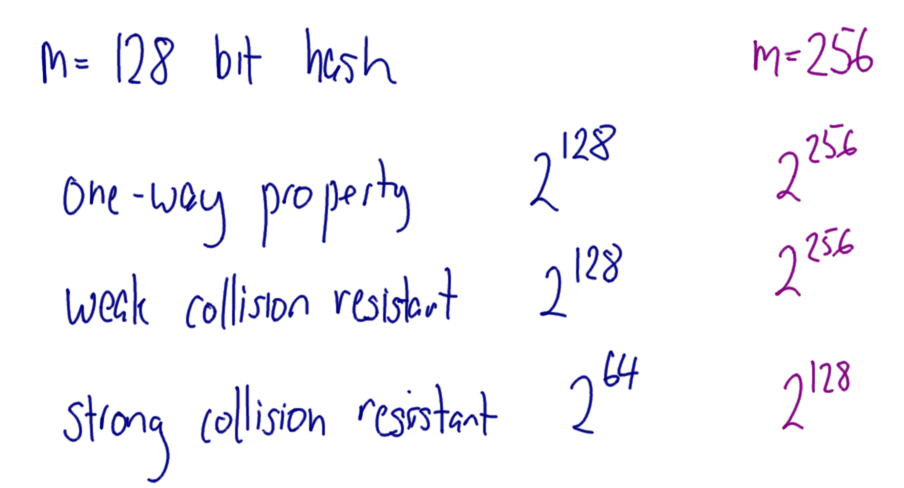 m= 128 bit hash m=256
one-way property 2^128 2^256
weak collision resistant 2^128 2^256
strong collision resistant 2^64 2^128